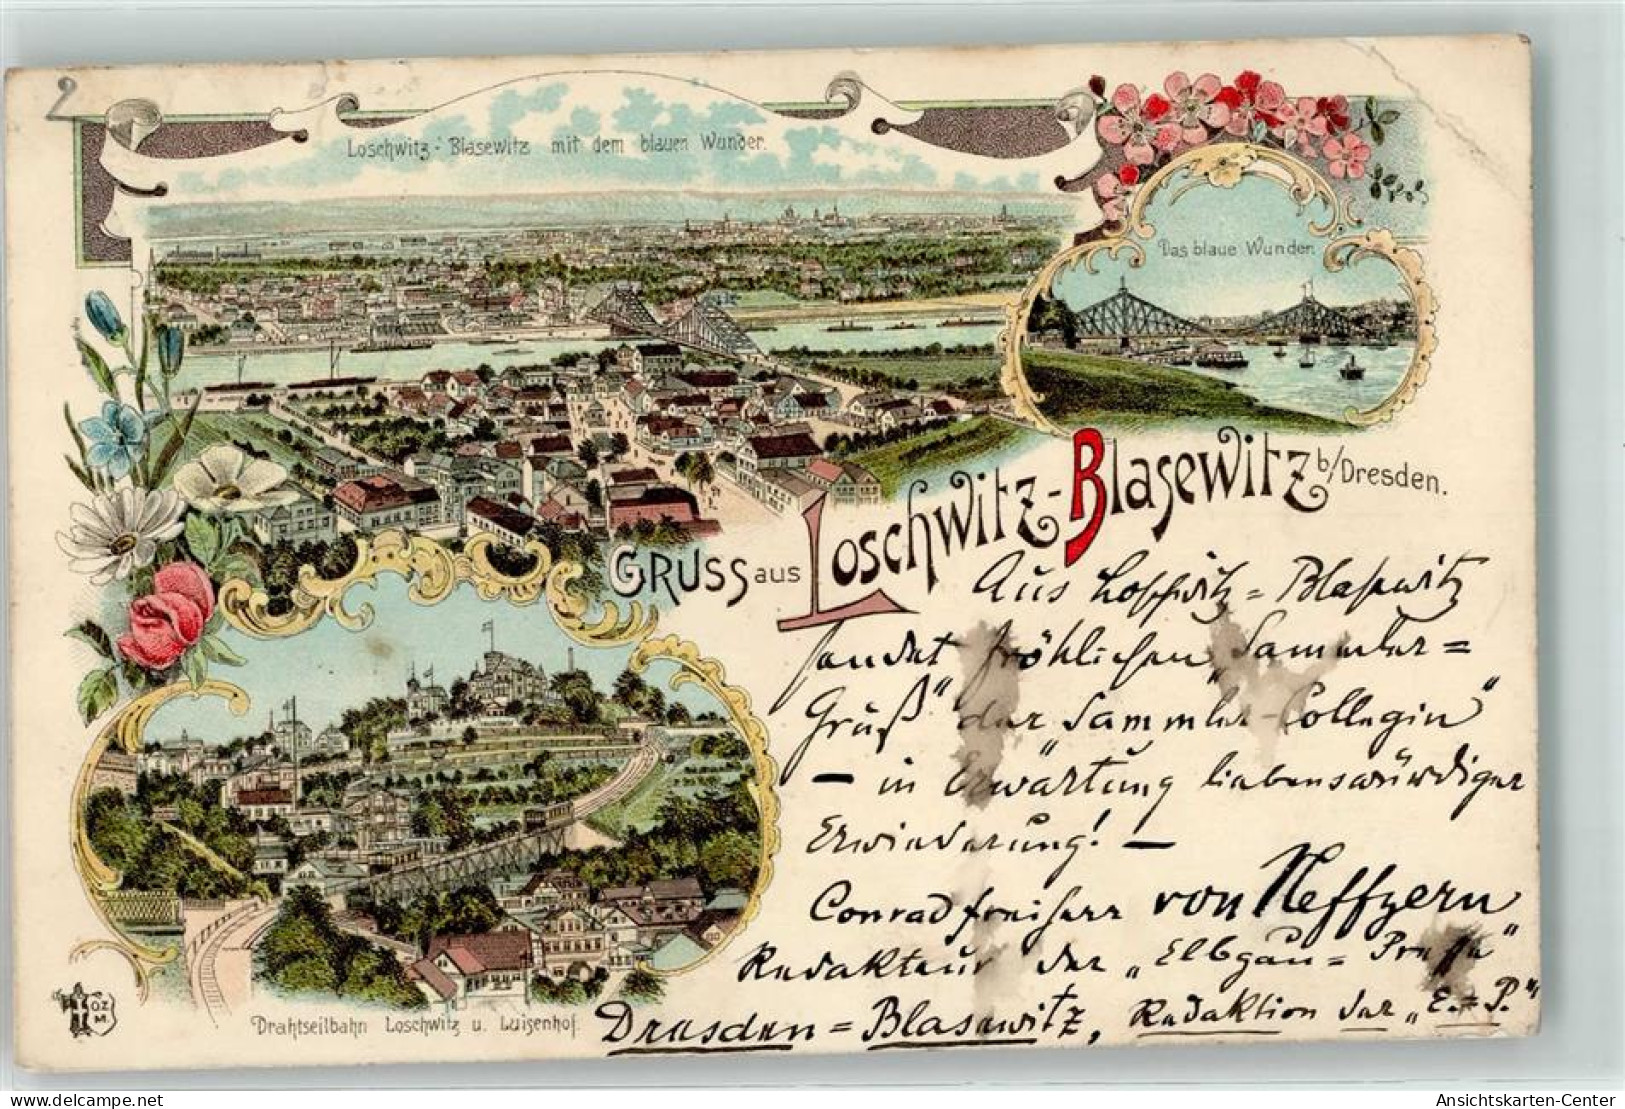 2
Loschwitz-Blasewitz mit dem blauen Wunder.
Das blaue Wunder.
GRUSS aus Loschwitz-Blasewitz b/Dresden.
Aus Loschwitz=Blasewitz
sendet fröhlichen „Sammler=
Gruß" der „Sammler-Collegin"
— in Erwartung liebenswürdiger
Erwiederung! —
Conrad Freiherr von Neffzern
Redakteur der „Elbgau=Presse"
Dresden=Blasewitz, Redaktion der „E.=P."
Drahtseilbahn Loschwitz u. Luisenhof.
O.Z.
M.
oldthing.net
Ansichtskarten-Center